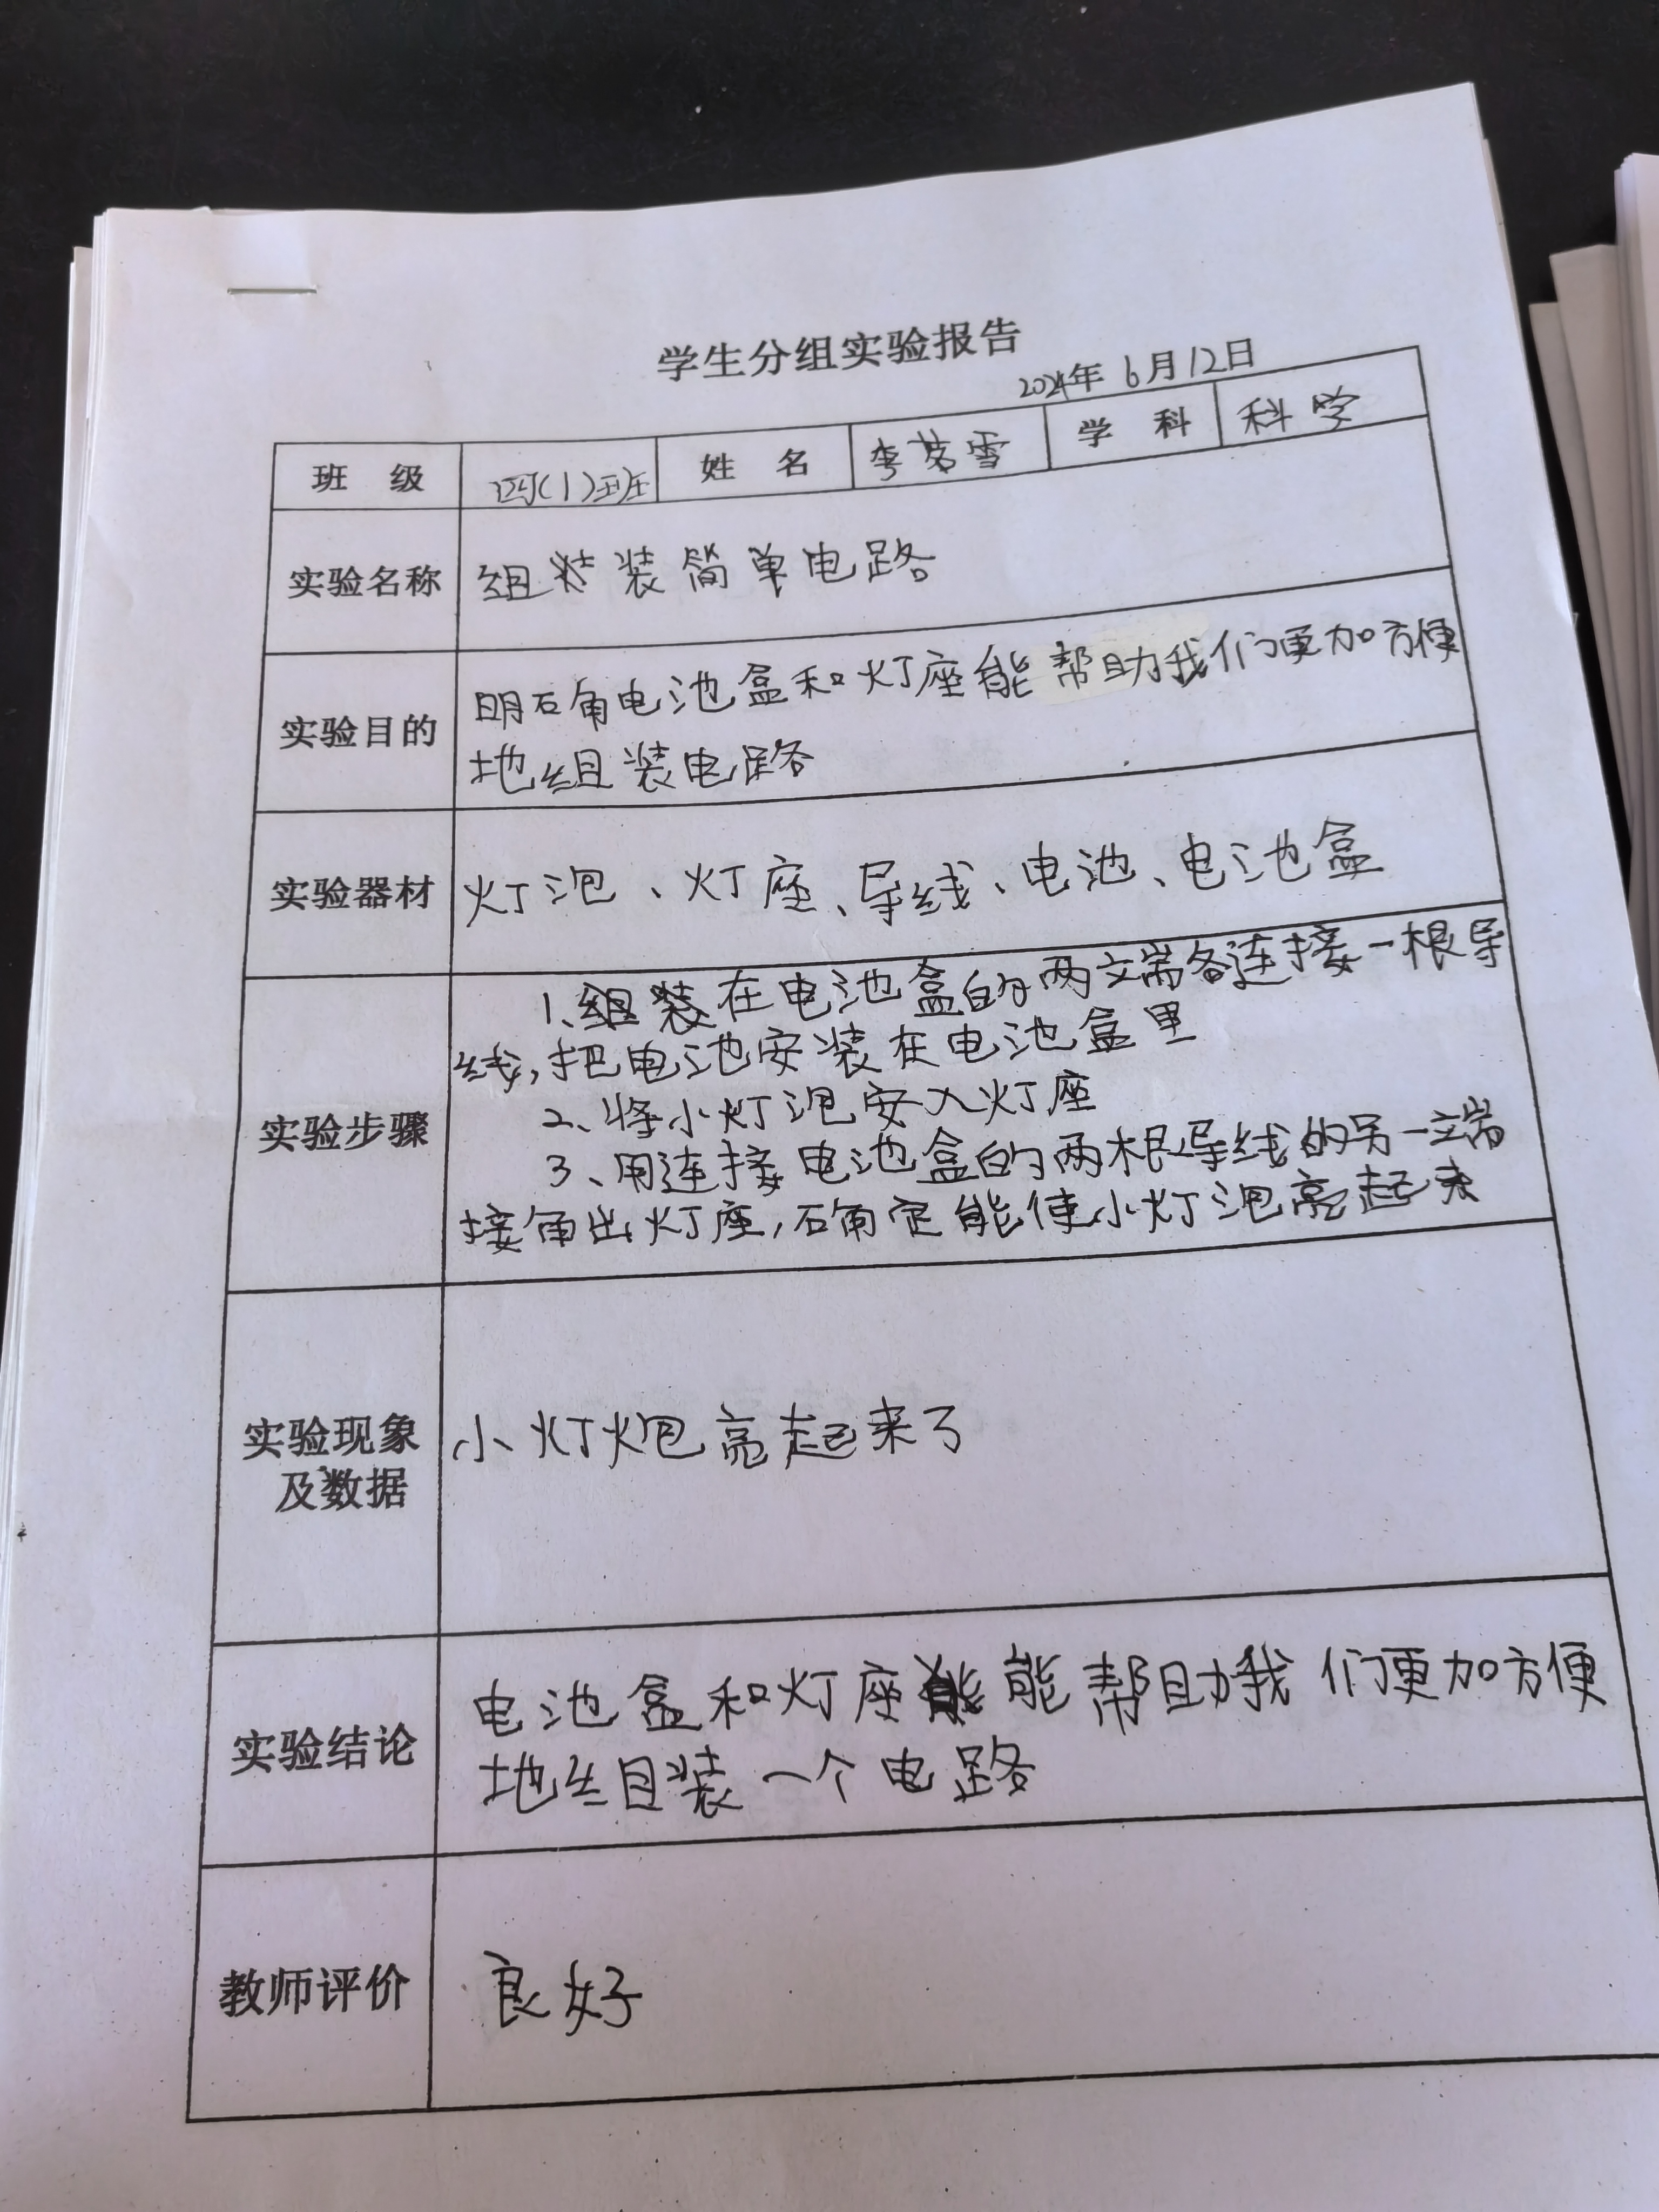 学生分组实验报告
2024年 6月12日
班 级 四(1)班 姓 名 李茗雪 学 科 科学
实验名称 组装简单电路
实验目的 明确电池盒和灯座能帮助我们更加方便
地组装电路
实验器材 灯泡、灯座、导线、电池、电池盒
1、组装在电池盒的两端各连接一根导
线,把电池安装在电池盒里
2、将小灯泡安入灯座
实验步骤
3、用连接电池盒的两根导线的另一端
接触灯座,确定能使小灯泡亮起来
实验现象
及数据
小灯炮亮起来了
实验结论 电池盒和灯座能帮助我们更加方便
地组装一个电路
教师评价 良好